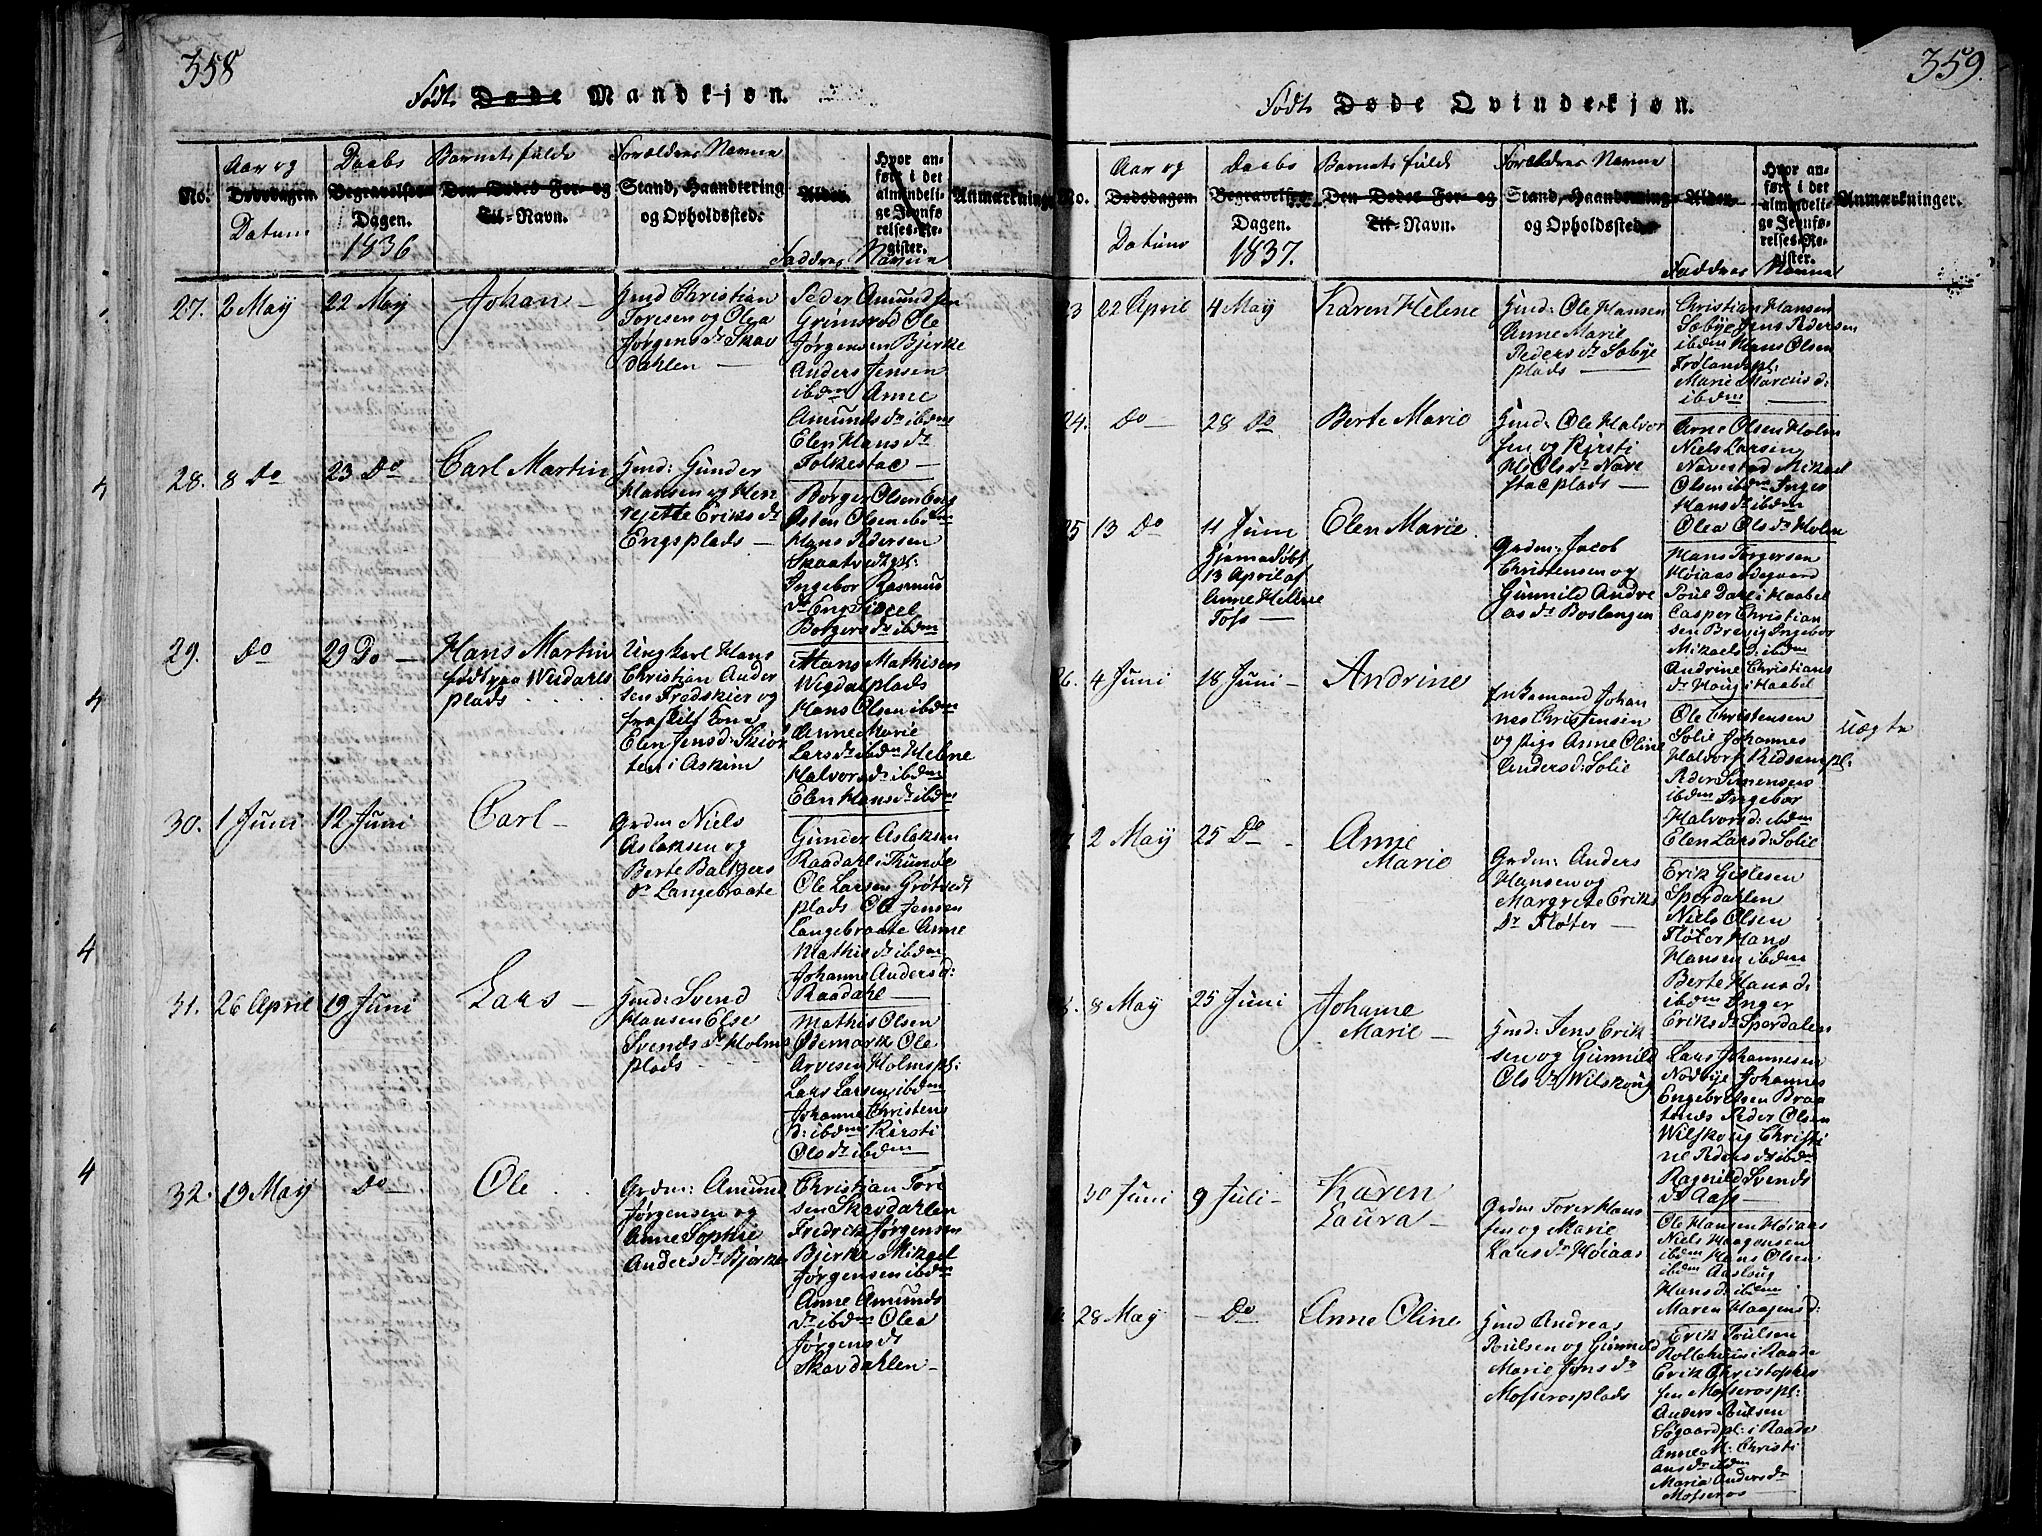 358
Födt Døde Mandkjøn.
No.
Aar og
Dødsdagen.
Datum
Daabs
Begravelses
Dagen.
1836
Barnets fulde
Den Dødes For- og
Til-Navn.
Forældres Navne
Stand, Haandtering
og Opholdssted.
Alder.
Hvor an-
ført i det
almindeli-
ge Jevnfø-
relses-Re-
gister.
Faddres Navne
Anmærkninger
27. 2 May
22 May
Johan —
Hmd Christian
Toresen og Olea
Jørgensdr Skav
dahlen —
Peder Amundsen
Grimsrød Ole
Jørgensen Bjerke
Anders Jensen
ibdm Anne
Amundsdr ibdm
Elen Hansdr
Folkestac —
28. 8 Do
23 Do
Carl Martin
Hmd: Gunder
Hansen og Hen
rejette Eriksdr
Engsplads —
Børger Olsen Eng
Østen Olsen ibdm
Hans Pedersen
Skaatvedtpl:
Ingebor Rasmus
dr Eng Sidcel
Borgersdr ibdm
29. Do
29 Do —
Hans Martin
født paa Wiidahls
plads
Ungkarl Hans
Christian Ander
sen Fredskier og
fraskilt Kona
Elen Jensd: Skiør
ten i Askim
Hans Mathisen
Wigdalplads
Hans Olsen ibdm
Anne Marie
Larsdr ibdm Helene
Halvorsdr ibdm
Elen Hansdr ibdm
30. 1 Juni
12 Juni
Carl —
Grdm Niels
Aslaksen og
Berte Baltzers
dr Langebraate
Gunder Aslaksen
Raadahl i Thunøe
Ole Larsen Grøtvedt
plads Ole Jensen
Langebraate Anne
Mathisdr ibdm
Johanne Andersd:
Raadahl —
31. 26 April
19 Juni
Lars —
Hmd: Svend
Hansen Else
Svendsdr Holms
plads
Mathis Olsen
Ødemark Ole
Arvesen Holmspl:
Lars Larsen ibdm
Johanne Christens
d: ibdm Kirsti
Olsdr ibdm
32. 19 May
Do
Ole
Grdm: Amund
Jørgensen og
Anne Sophie
Andersdr Bjørke
Christian Tore
sen Skavdahlen
Fredrik Jørgensen
Bjerke Mikael
Jørgensen ibdm
Anne Amunds
dr ibdm Olea
Jørgensdr
Skavdahlen —
4
4
4
4
359.
Födt Døde Qvindekjøn.
No.
Aar og
Dødsdagen.
Datum
Daabs
Begravelses
Dagen.
1837.
Barnets fuld
Den Dødes For- og
Til-Navn.
Forældres Navne
Stand, Haandtering
og Opholdssted
Alder.
Hvor an-
ført i det
almindeli-
ge Jevnfø-
relses-Re-
gister.
Faddres Navne
Anmærkninger.
23 22 April
4 May
Karen Helene
Hmd: Ole Hansen
Anne Marie
Pedersdr Sobye
plads —
Christian Hansen
Søbye Jens Pedersen
ibdm Hans Olsen
Frølandspl:
Marie Marcusd:
ibdm
24. Do —
28 Do
Berte Marie
Hmd: Ole Halvor
sen og Kirsti
Olsdr Nave
stacplads —
Arne Olsen Holm
Niels Larsen
Navestad Mikael
Olsen ibdm Inger
Hansdr ibdm
Olea Olsdr Holm
25 13 Do
11 Juni
Hjemmedøbt
13 April af
Anne Helene
Foss —
Elen Marie
Grdm: Jacob
Christensen og
Gunnild Andre
asdr Boslangen
Hans Torgersen
Høiaas Ødegaard
Poul Dahl i Haabel
Casper Christian
sen Brevig Ingebor
Mikaelsd: ibdm
Andrine Christians
dr Houg i Haabel
26. 4 Juni
18 Juni —
Andrine
Enkemand Johan
nes Christensen
og Pige Anne Oline
Andersd: Solie
Ole Christensen
Solie Johannes
Halvors Ridsempl:
Peder Simensen
ibdm Ingebor
Halvorsd: ibdm
Elen Larsd: Solie
uægte
2 May
25 Do —
Anne
Marie
Grdm: Anders
Hansen og
Margrete Eriks
dr Fløter —
Erik Gislesen
Spordahlen
Niels Olsen
Fløter Hans
Hansen ibdm
Berte Hansd:
ibdm Inger
Eriksdr Spordalen
8 May
25 Juni
Johanne
Marie —
Hmd: Jens Erik
sen og Gunnild
Olsdr Wilskoug
Lars Johannesen
Nodbye Johannes
Engebretsen Braa
tenes Peder Olsen
Wilskoug Christi
ne Pedersdr ibdm
Ragnild Svends
dr Aass —
30 Juni
9 Juli —
Karen
Laura —
Grdm Torer Hans
sen og Marie
Larsdr Høiaas
Ole Hansen Høiaas
Niels Haagensen
ibdm Hans Olsen
ibdm Aasloug
Hansd: ibdm
Maren Haagensd:
28 May
— Do
Anne Oline
Hmd Andreas
Poulsen og Gunnild
Marie Jensdr
Mosserosplads
Erik Poulsen
Rollehuus i Raade
Erik Christophes
sen Mosserospl:
Anders Poulsen
Søgaardpl: i Raade
Anne M: Christi
ansdr ibdm
Maria Andersdr
Mosseros